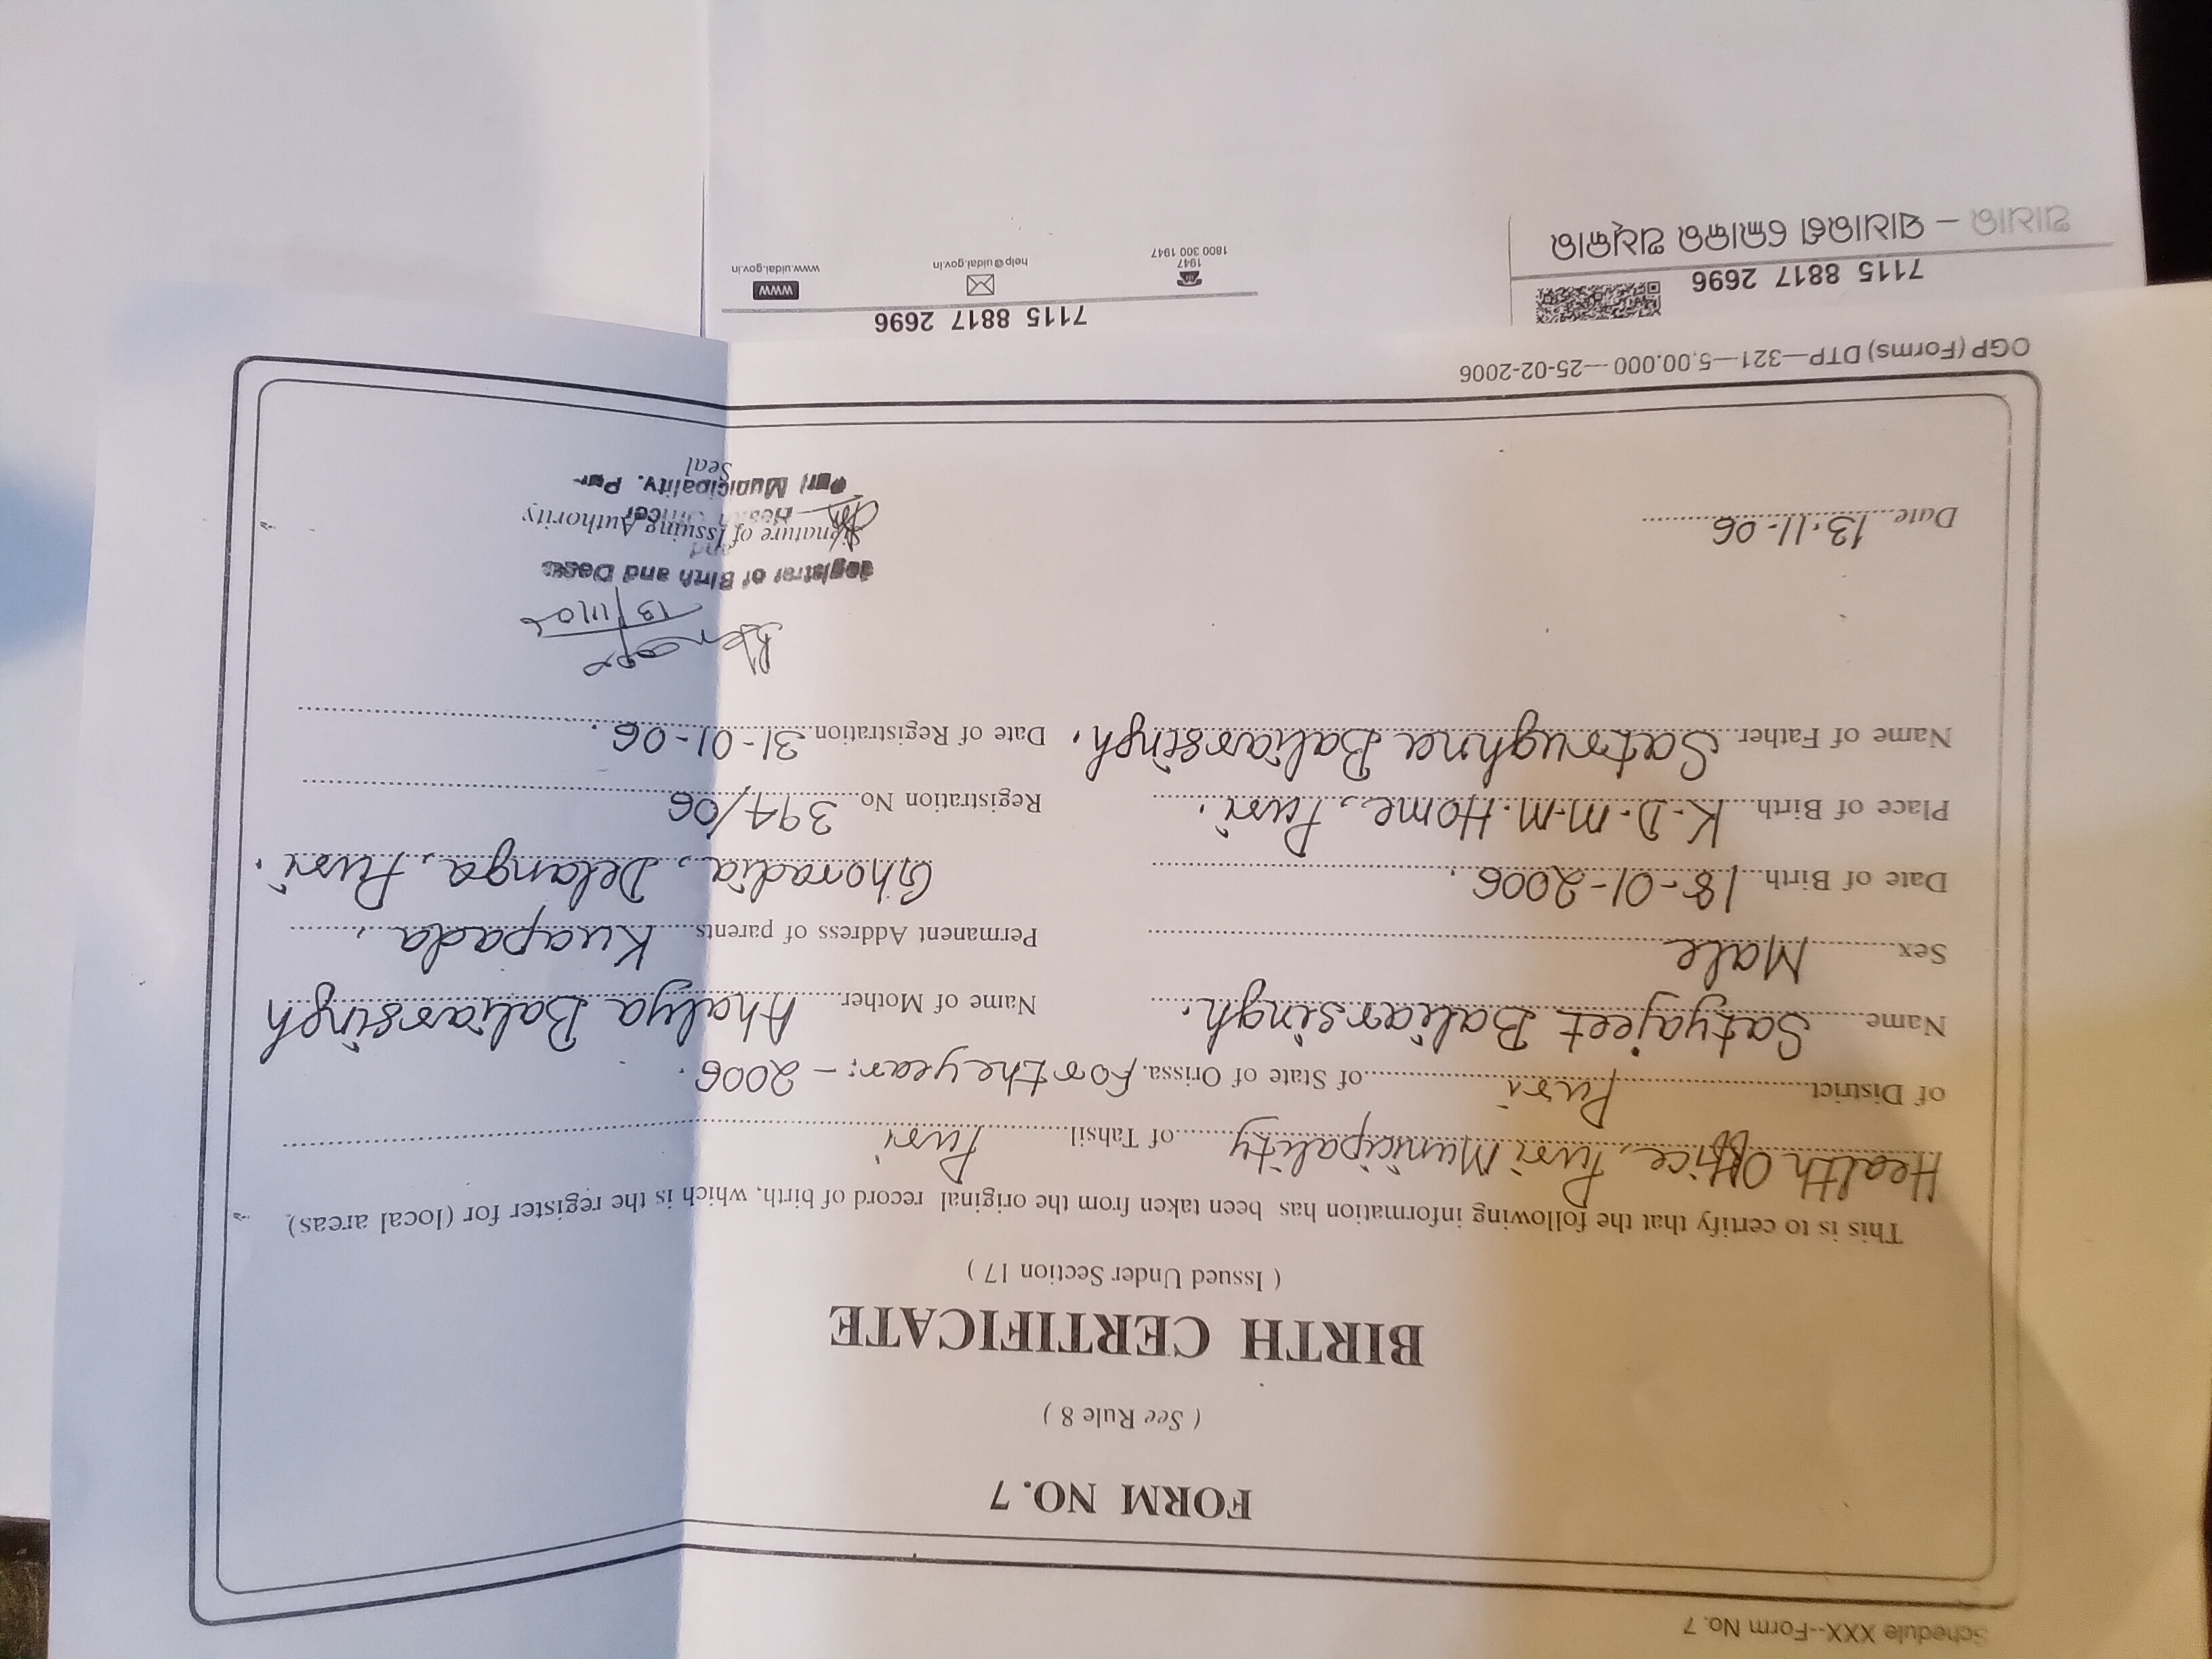 Schedule XXX--Form No. 7
FORM NO. 7
( See Rule 8 )
BIRTH CERTIFICATE
( Issued Under Section 17 )
This is to certify that the following information has been taken from the original record of birth, which is the register for (local areas)
Health Office, Puri Municipality of Tahsil Puri
of District Puri of State of Orissa. For the year:- 2006.
Name Satyajeet Baliarsingh. Name of Mother Ahalya Baliarsingh
Sex Male Permanent Address of parents Kuapada,
Date of Birth 18-01-2006. Ghoradia, Delanga, Puri.
Place of Birth K.D.M.M. Home, Puri. Registration No. 394/06
Name of Father Satrughna Baliarsingh. Date of Registration 31-01-06.
13/11/06
Registrar of Birth and
and
Signature of Issuing Authority
Health Officer
Date 13.11-06
Puri Municipality. Puri
Seal
OGP (Forms) DTP—321—5,00,000—25-02-2006
7115 8817 2696
ଆଧାର – ସାଧାରଣ ଲୋକର ଅଧିକାର
7115 8817 2696
1947
1800 300 1947
help@uidai.gov.in
www
www.uidai.gov.in